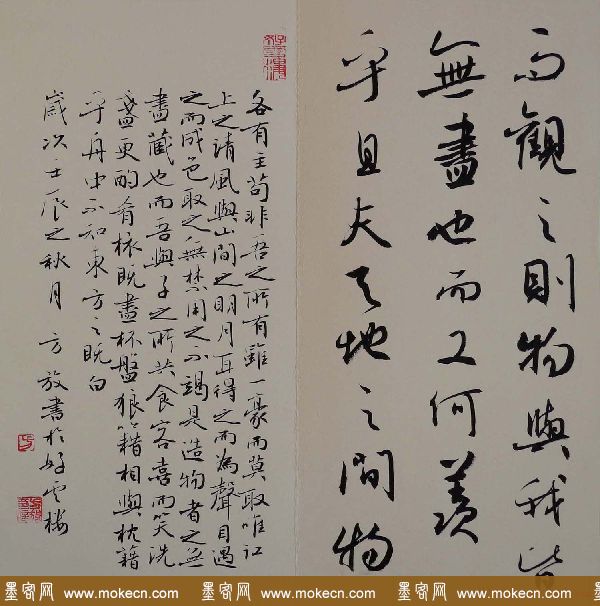 而觀之則物與我皆
無盡也而又何羨
乎且夫天地之間物
各有主苟非吾之所有雖一豪而莫取唯江
上之清風與山間之明月耳得之而為聲目遇
之而成色取之無禁用之不竭是造物者之無
盡藏也而吾與子之所共食客喜而笑洗
盞更酌肴核既盡杯盤狼籍相與枕藉
乎舟中不知東方之既白
歲次壬辰之秋月 方放書於好雲樓
墨客网 www.mokecn.com 墨客网 www.mokecn.com 墨客网 www.mokecn.com